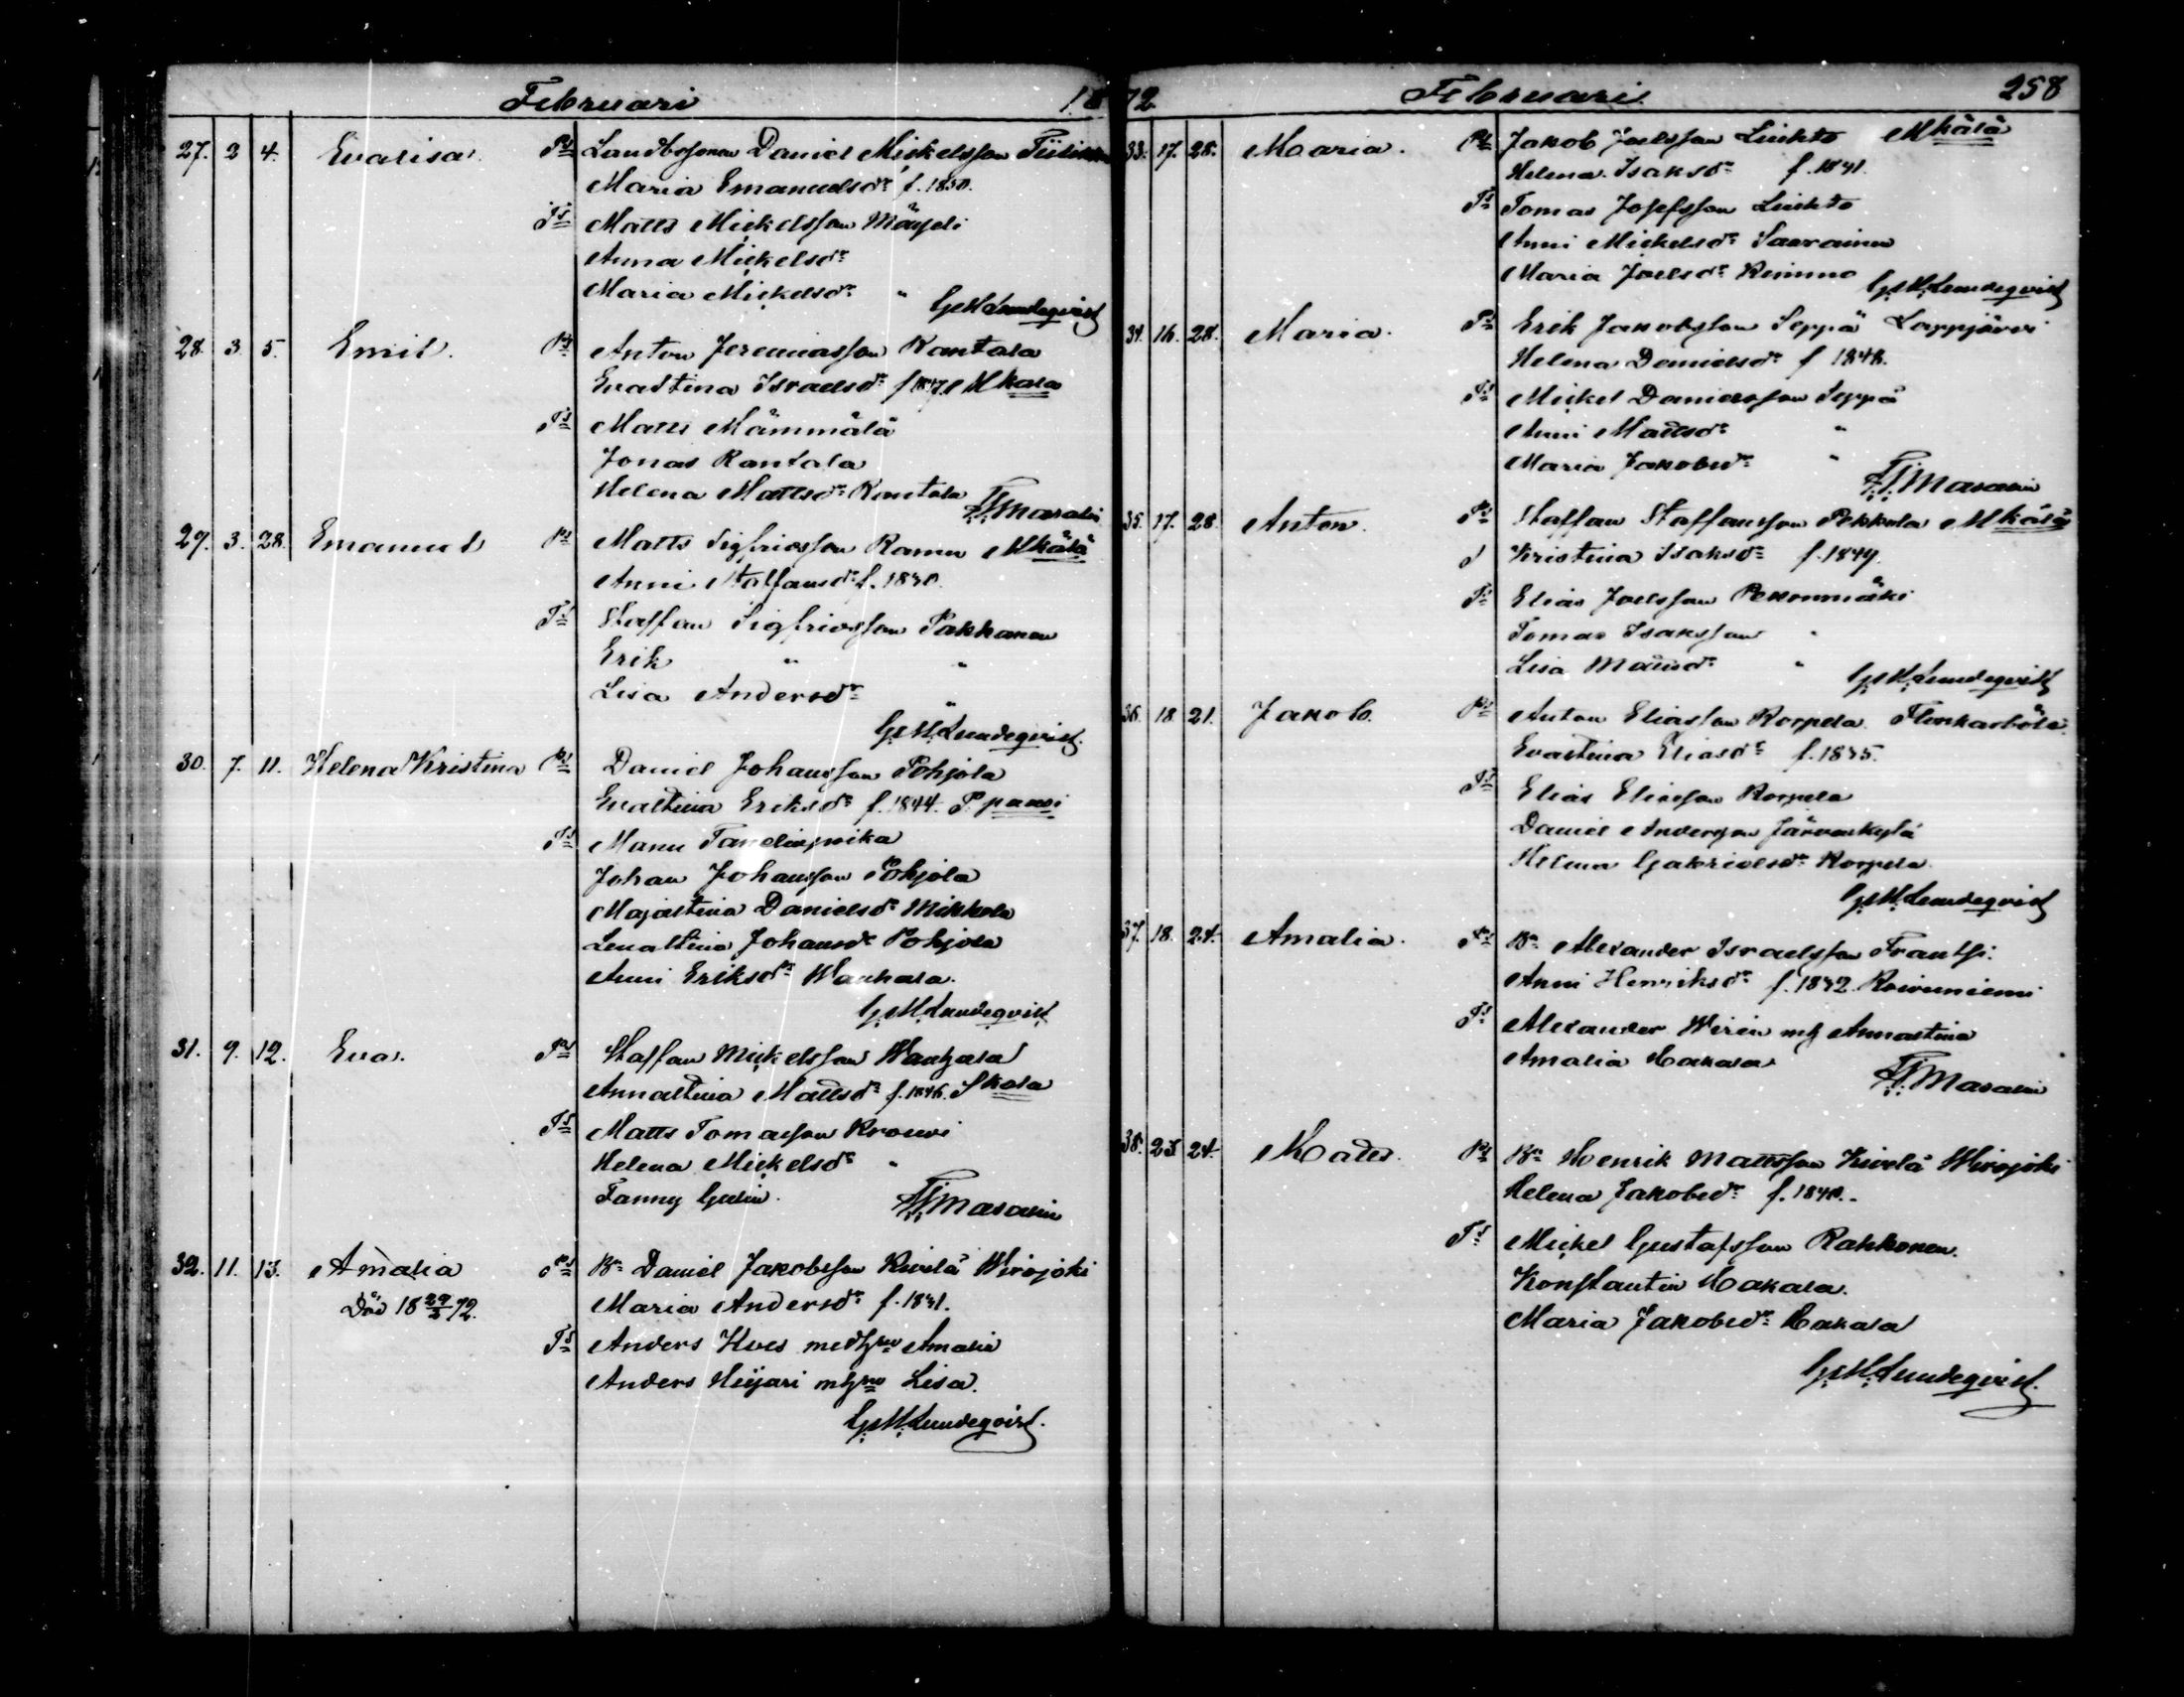 Februari 18
27. 2 4. Evalisa. Ps Landbosonen Daniel Mickelsson
Maria Emanuelsdr f. 1850.
Ts Matts Mickelsson
Anna Mickelsdr
Maria Mickelsdr "
GMLundeqvist
28. 3. 5. Emil. Ps Anton Jeremiasson Rantala
Evastina Israelsdr
Ts Matts Mämmälä
Jonas Rantala
Helena Mattsdr Rantala
Masalin
29. 3. 28. Emanuel Ps Matts Sigfridsson Mkälä
Anni Staffansdr f. 1830.
Ts Staffan Sigfridsson Pakkanen
Erik " "
Lisa Andersdr "
GMLundeqvist.
30. 7. 11. Helena Kristina Ps Daniel Johansson Pohjola
Evastina Eriksdr f. 1844.
Ts Manu
Johan Johansson Pohjola
Majastina Danielsdr Mikkola
Lenastina Johansdr Pohjola
Anni Eriksdr
GMLundeqvist
31. 9. 12. Eva. Ps Staffan Mickelsson
Annastina Mattsdr f. 1846.
Ts Matts Tomasson
Helena Mickelsdr "
Fanny
Masalin
32. 11. 13. Amalia Ps Bn Daniel Jakobsson Kivelä Wirojoki
Död 18 29/2 72. Maria Andersdr f. 1841.
Ts Anders med Amalia
Anders Lisa.
GMLundeqvist.
72 Februari 258
33. 17. 28. Maria. Ps Jakob Joelsson Luukko Mkälä
Helena Isaksdr f. 1841.
Ts Tomas Josefsson Luukko
Anni Mickelsdr Saarainen
Maria Joelsdr
GMLundeqvist
34. 16. 28. Maria. Ps Erik Jakobsson Seppä Lappjärvi
Helena Danielsdr f 1848.
Ts Mickel Danielsson Seppä
Anni Mattsdr "
Maria Jakobsdr "
Masalin
35. 17. 28. Anton. Ps Staffan Staffansson Pekkola Mkälä
Kristina Isaksdr f. 1849.
Ts Elias Joelsson
Tomas Isaksson "
Lisa Mattsdr "
GMLundeqvist
36. 18. 21. Jakob. Ps Anton Eliasson Korpela
Evastina Eliasdr f. 1835.
Ts Elias Eliasson Korpela
Daniel Andersson Järvenkylä
Helena Gabrielsdr Korpela
GMLundeqvist
37. 18. 24. Amalia. Ps Bn Alexander Israelsson Frantsi.
Anni Henriksdr f. 1842. Koivuniemi
Ts Alexander Annastina
Amalia Hakala
Masalin
38. 23 24. Matts. Ps Bn Henrik Mattsson Kivelä Wirojoki
Helena Jakobsdr f. 1840.
Ts Mickel Gustafsson Rahkonen.
Konstantin Hakala.
Maria Jakobsdr Hakala
GMLundeqvist.